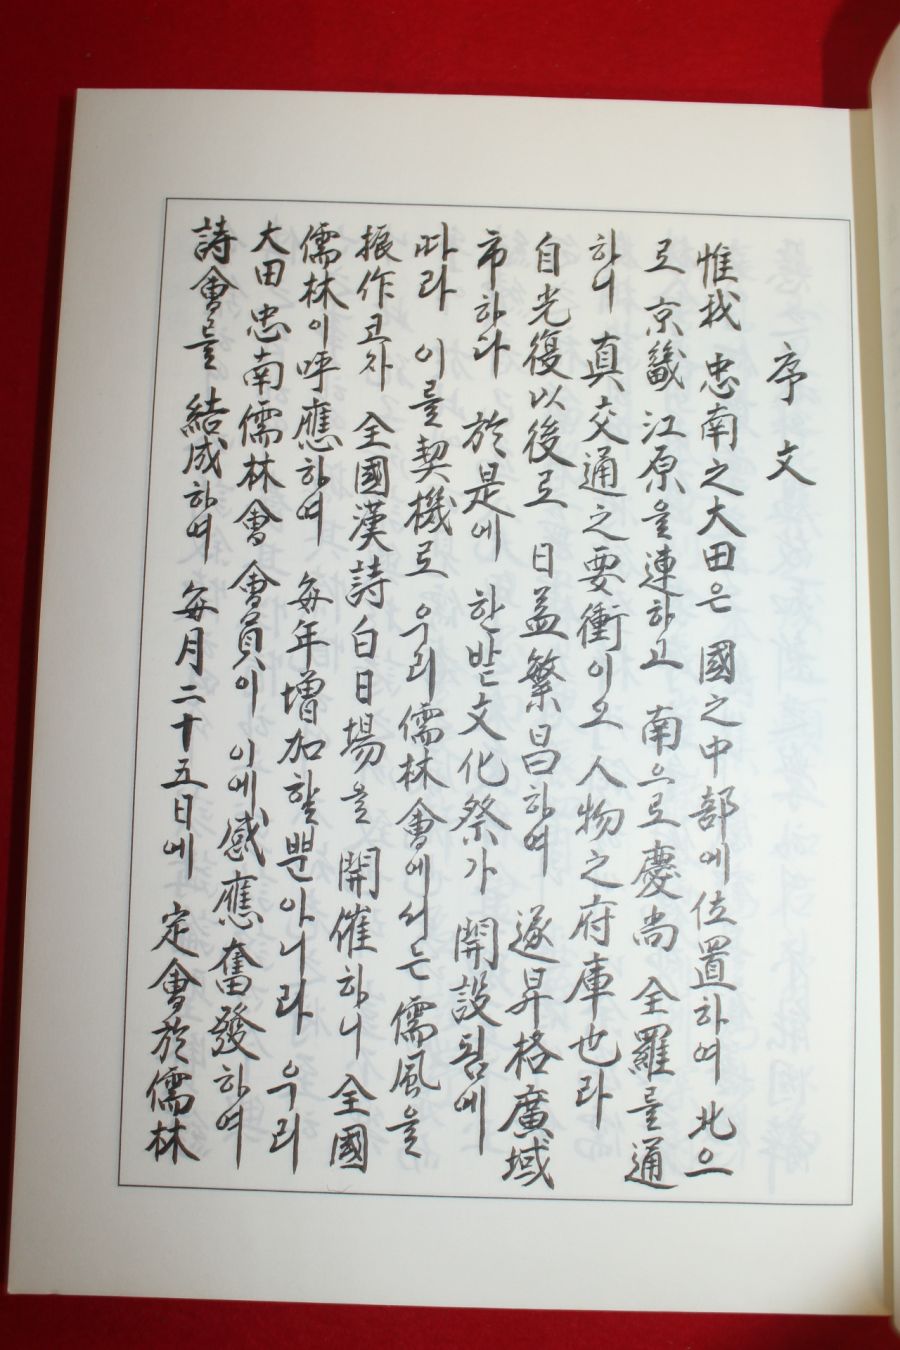 序文
惟我 忠南之大田은 國之中部에位置하여 北으
로京畿 江原을連하고 南으로慶尚 全羅를通
하니 真交通之要衝이오人物之府庫也라
自光復以後로 日益繁昌하여 遂昇格廣域
市하다 於是에 한밭文化祭가 開設됨에
따라 이를契機로 우리儒林會에서는儒風을
振作코자 全國漢詩白日場을 開催하니 全國
儒林이呼應하여 每年增加할뿐아니라 우리
大田忠南儒林會 會員이 이에感應奮發하여
詩會를 結成하여 每月二十五日에 定會於儒林